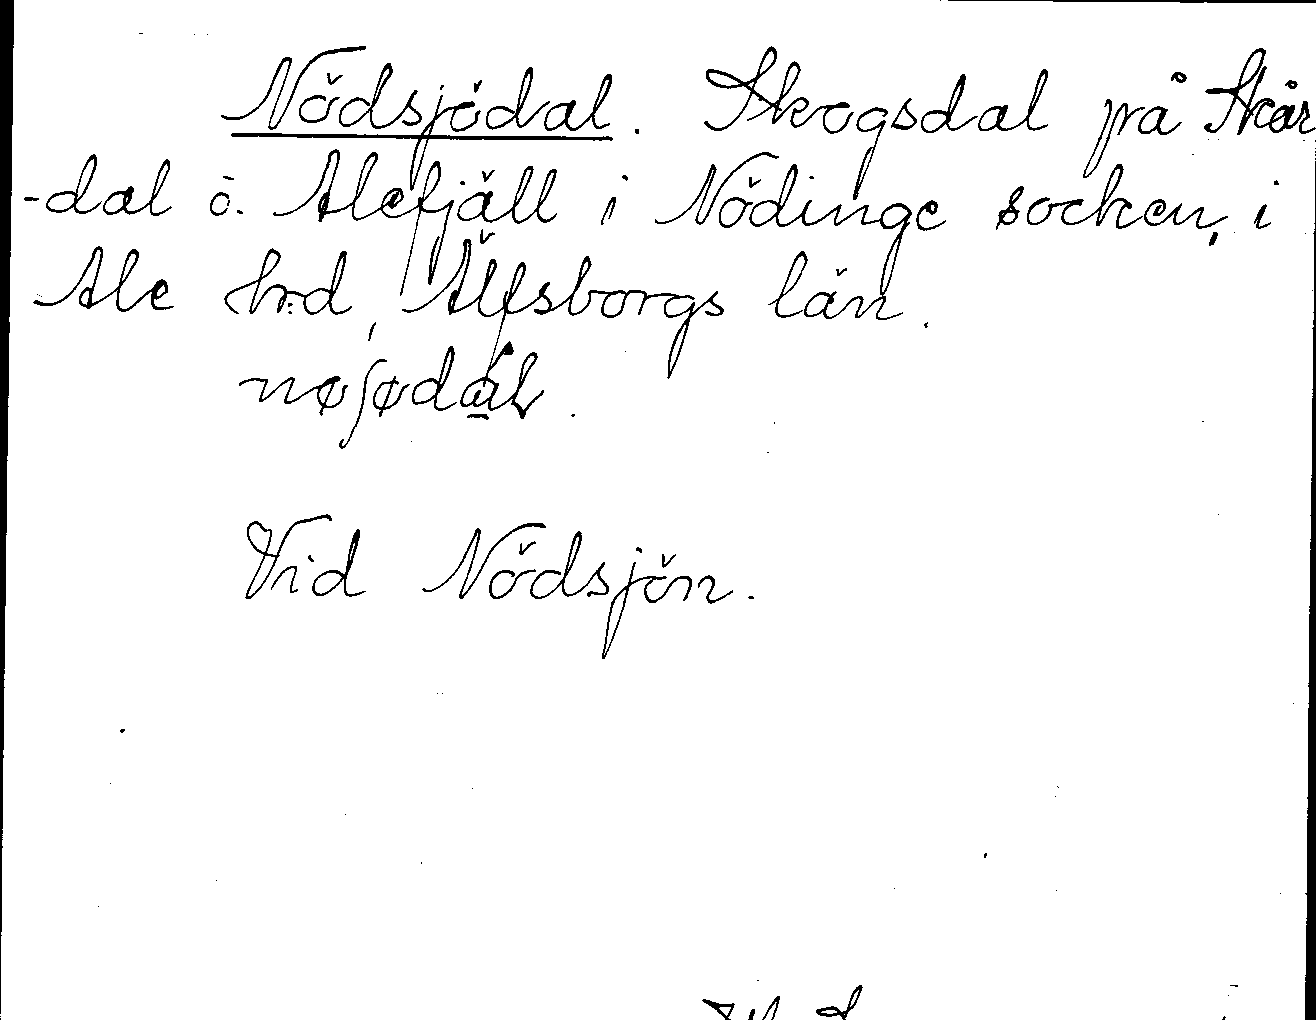 Nödsjödal. Skogsdal på Skår
-dal ö. Alefjäll i Nödinge socken, i
Ale hrd, Älfsborgs län.
nøʃødàl.
Vid Nödsjön.